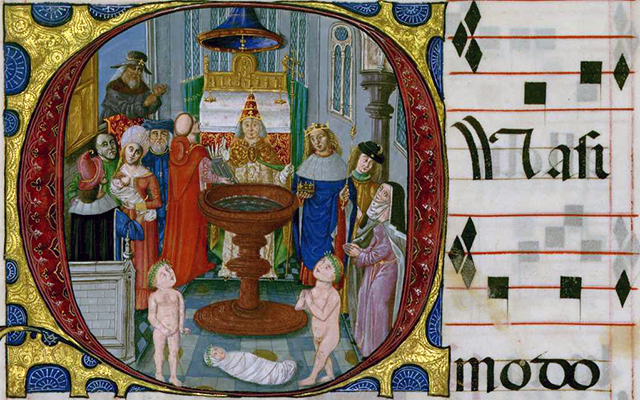 QUasi
modo